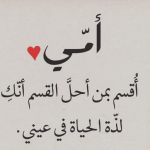 أمّي
أُقسم بمن أحلَّ القسم أنّكِ
لذّة الحياة في عيني.